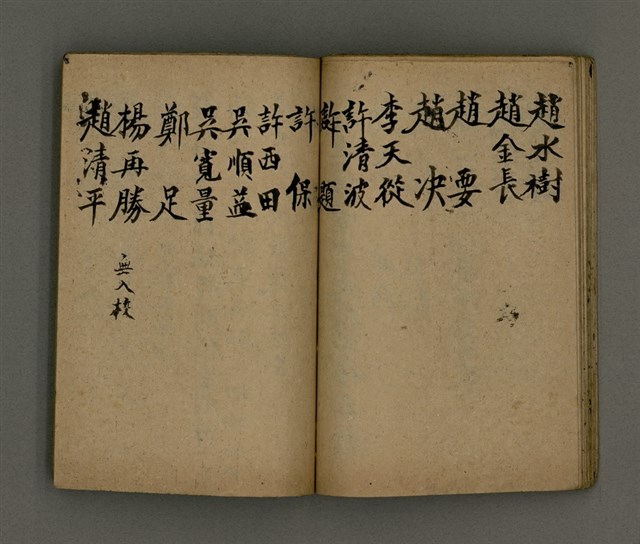 趙水樹
趙金長
趙要
趙决
李天從
許清波
許題
許保
許西田
吳順益
吳寬量
鄭足
楊再勝 無入校
趙清平